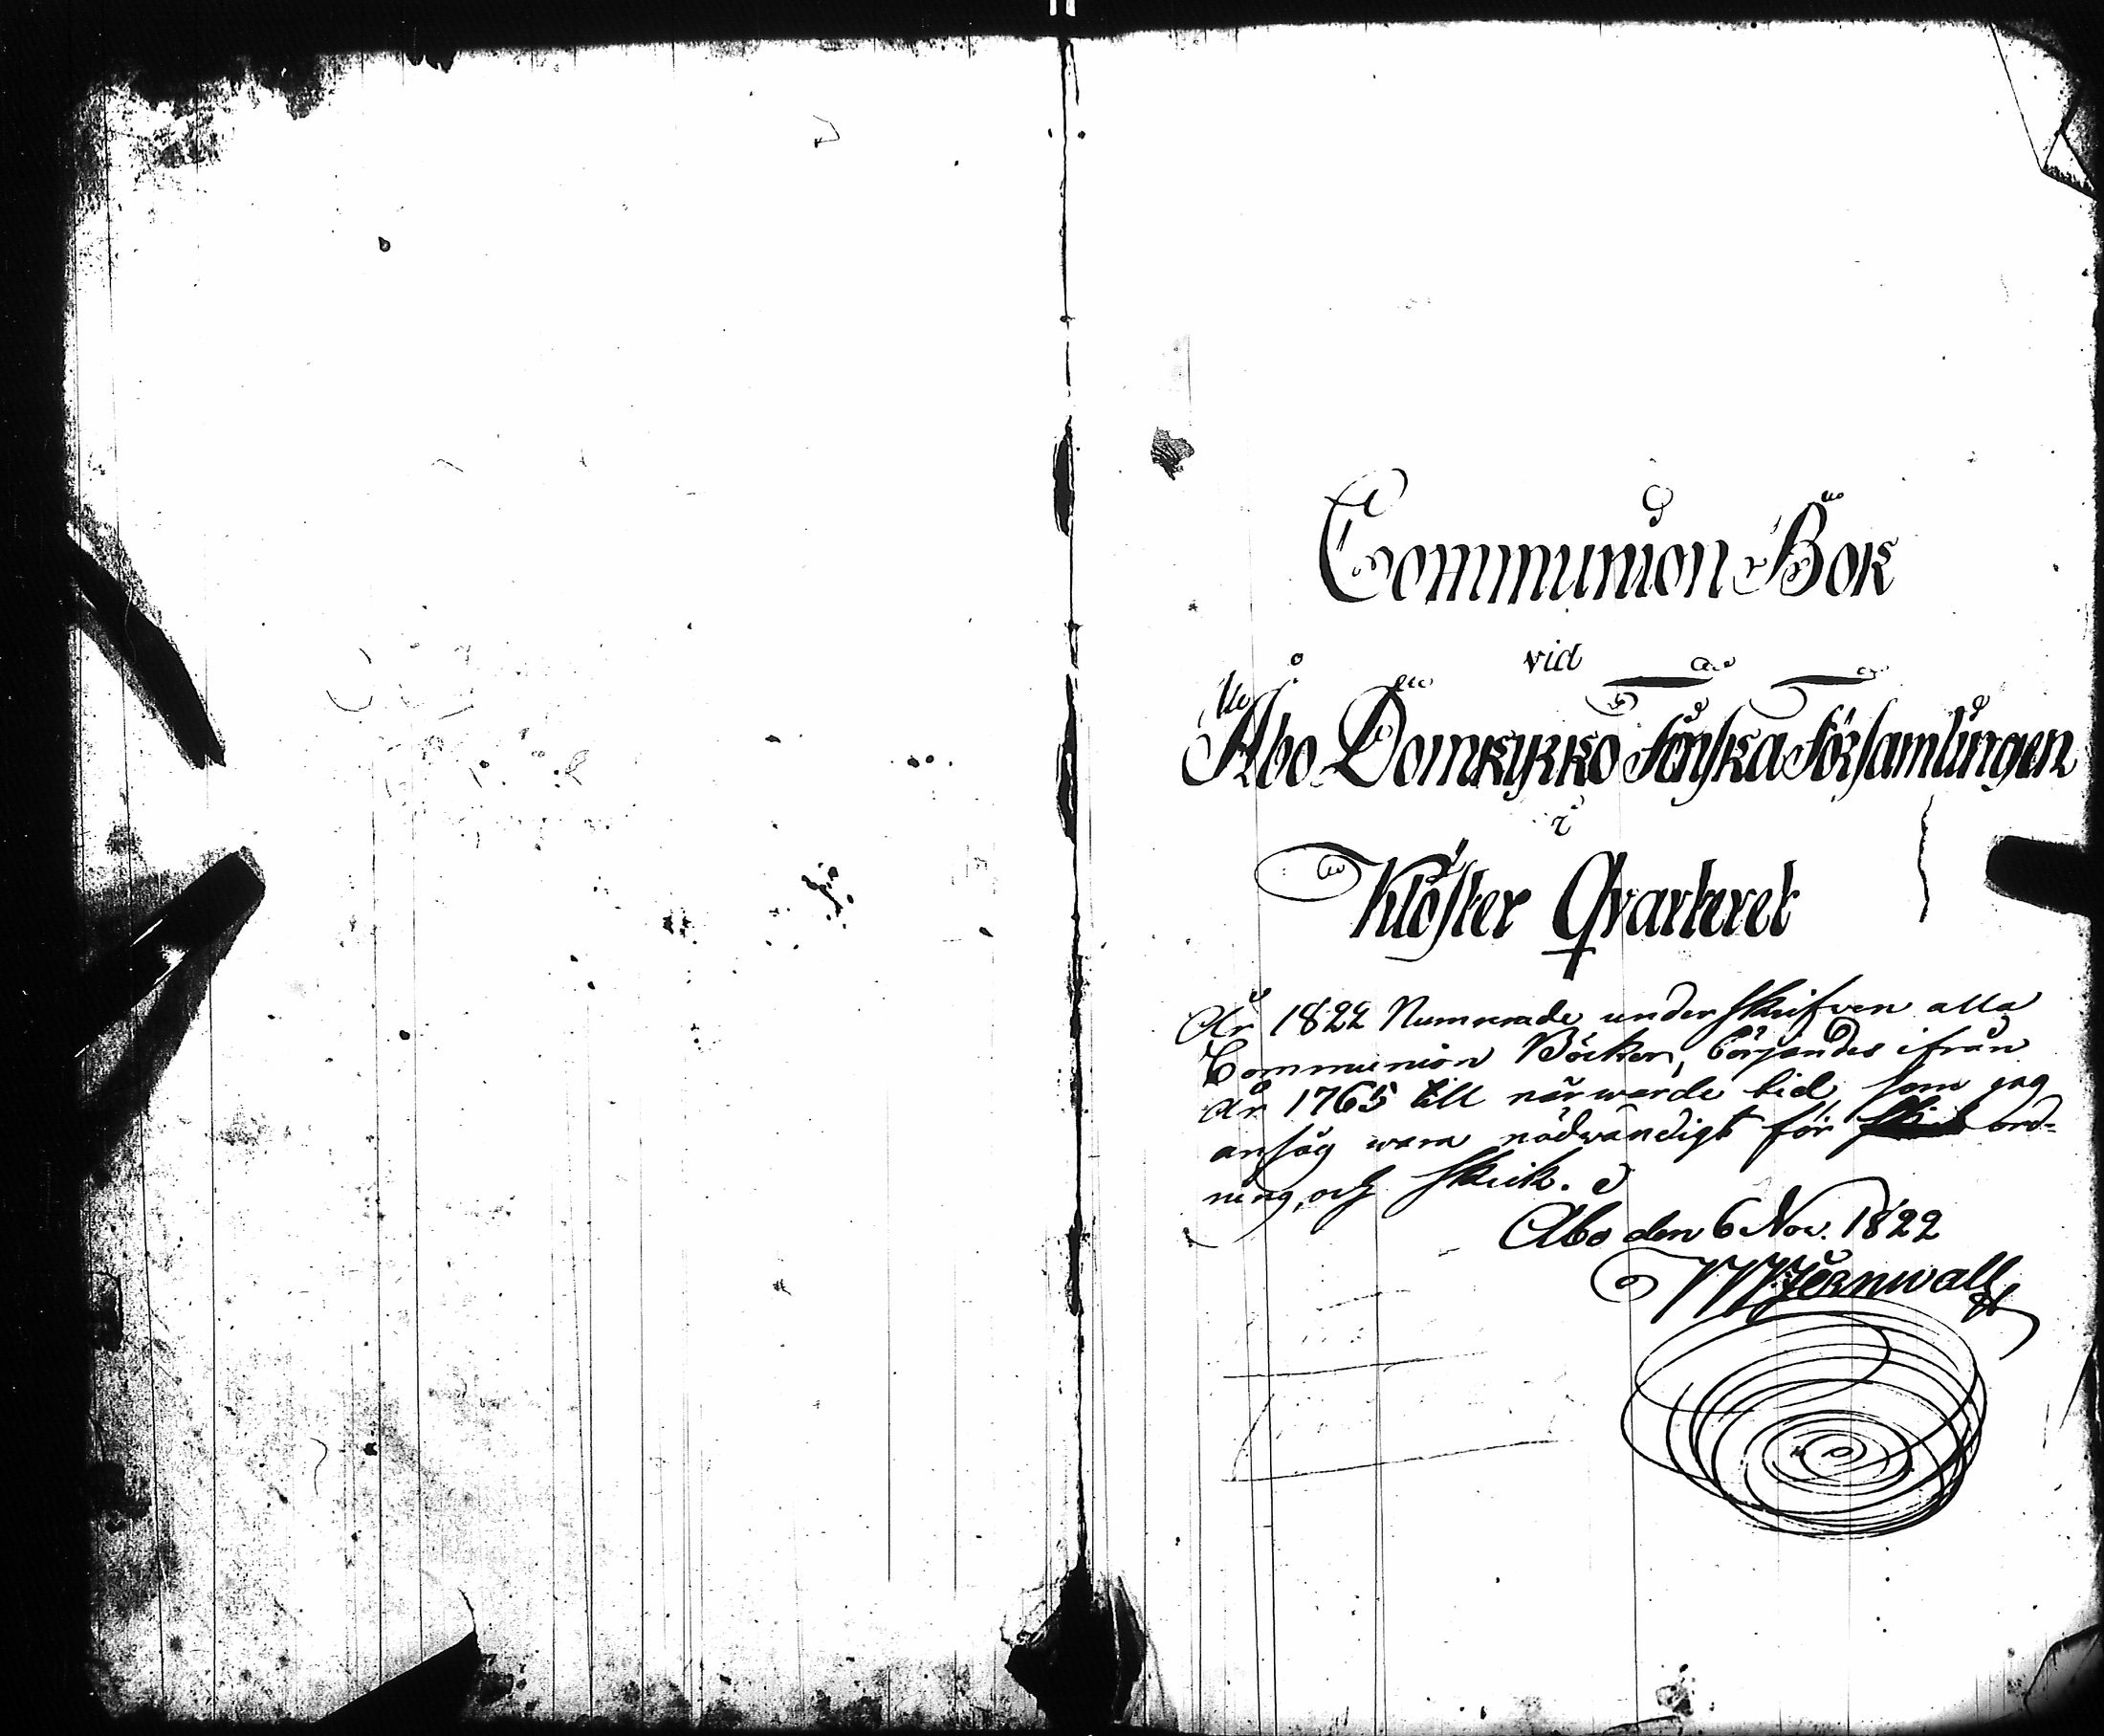 Communion Bok
vid
Åbo Domkyrko Finska Församlingen
i
Kloster Qvarteret
År 1822 Numrerade underskrifven alla
Communion Böcker, börjandes ifrån
år 1765 till närwarde tid, som jag
ansåg wara nödwändigt för ord-
ning, och skick.
Åbo den 6 Nov. 1822
Jernwall